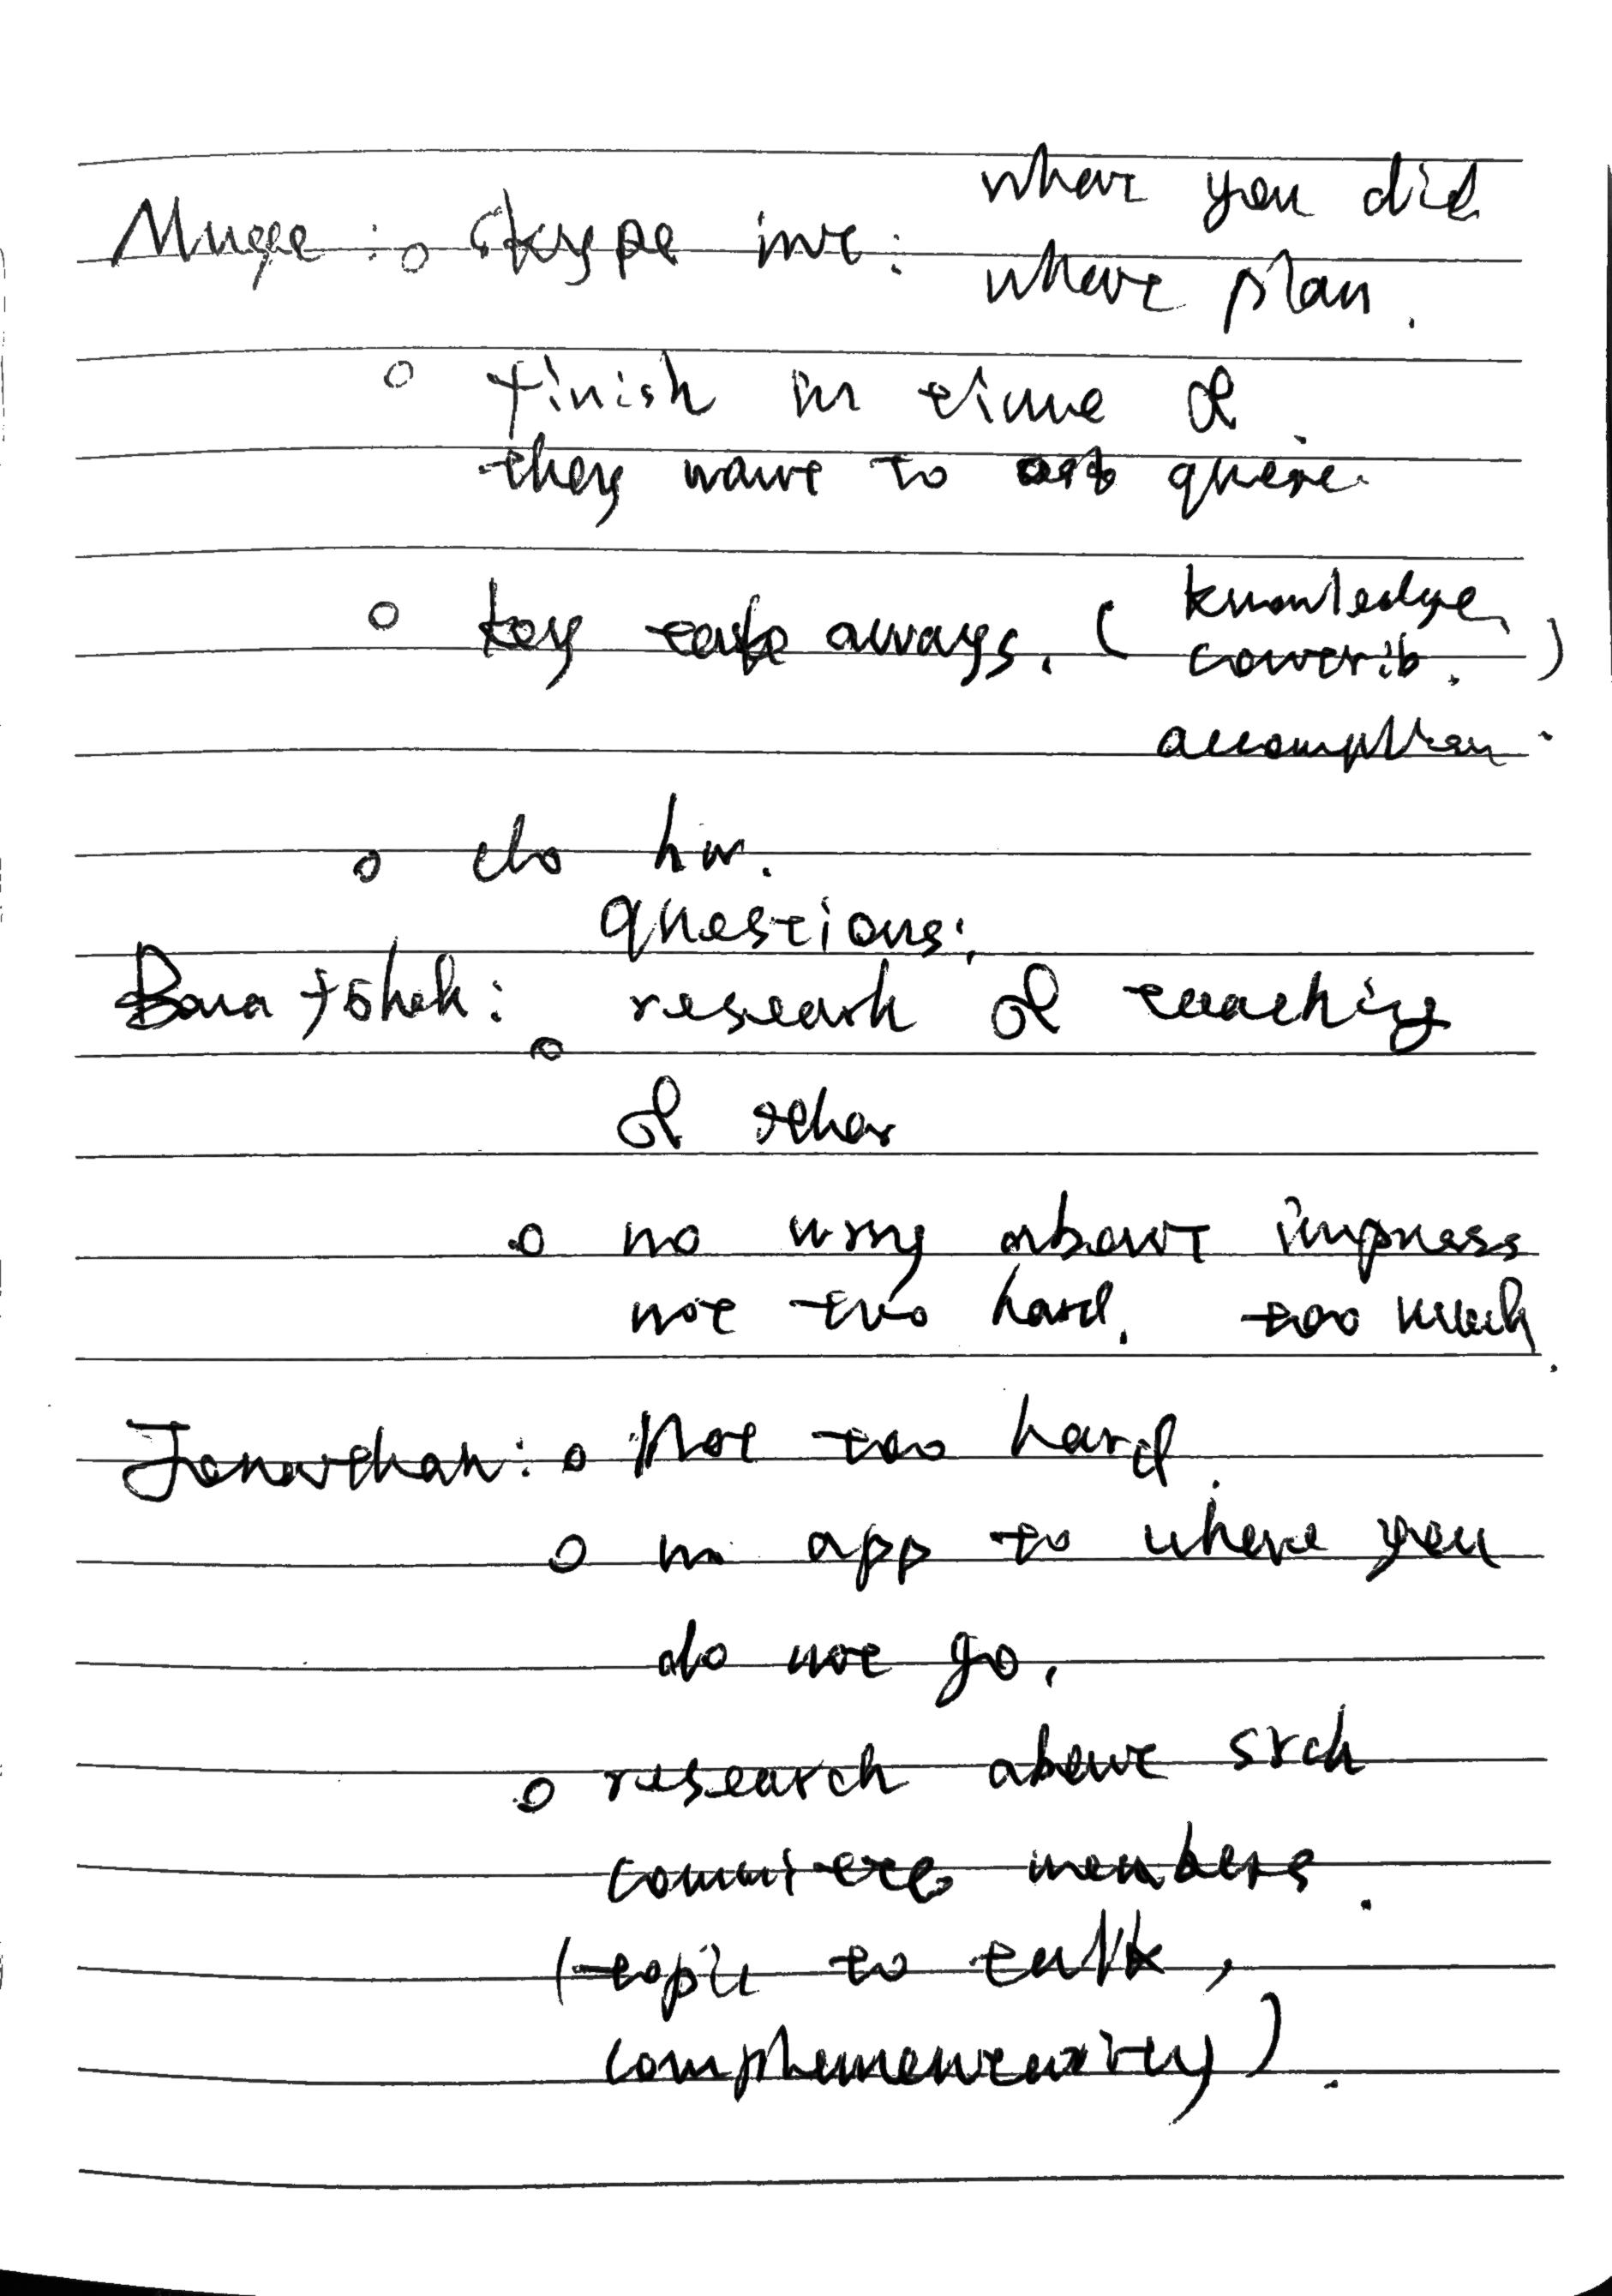 what you did
Muge : o Skype int. :
what plan.
o finish in time &
they want to ask quest.
o key take aways. ( knowledge,
contrib. )
accomplishm.
o do hw.
questions:
: research & teaching
o
& other
o no worry about impress
not too hard. too much.
Jonathan : o Not too hard.
o no app to where you
do not go.
o research about srch
committee members.
(topic to talk,
complementarity).